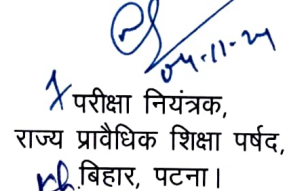 04-11-24
परीक्षा नियंत्रक,
राज्य प्रावैधिक शिक्षा पर्षद,
बिहार, पटना।